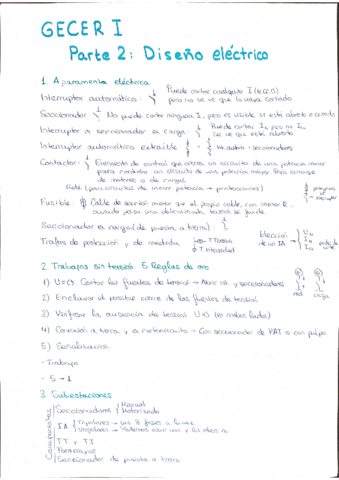 GECER I
Parte 2: Diseño eléctrico
1. Aparamenta eléctrica
Interruptor automático: Puede cortar cualquier I (N.CC.O) pero no se ve que lo haya cortado
Seccionador No puede cortar ninguna I, pero es visible si está abierto o cerrado
Interruptor o seccionador en carga: Puede cortar In, pero no Icc
Se ve que está abierto
Interruptor automático extraíble = Int. autom + seccionadores
Contactor: Elemento de control que cierra un circuito de una potencia menor
para controlar un circuito de una potencia mayor. Para arranque
de motores o de cargas.
Relé (para circuitos de menor potencia → protecciones)
Fusible: Cable de sección menor que el propio cable, con menor R,
cuando pasa una determinada tensión se funde.
Seccionador a carga (de puesta a tierra):
Trafos de protección y de medida T Tensión
T. Intensidad
Elección de un IA → Un
In
Icc
2. Trabajos sin tensión. 5 Reglas de oro
1) U=0. Cortar las fuentes de tensión → Abrir IA y seccionadores
2) Enclavar el posible cierre de las fuentes de tensión
3) Verificar la ausencia de tensión U=0 (en ambos lados)
4) Conexión a tierra y a cortocircuito → Con seccionador de PAT o con pulpo
5) Señalización
red carga
- Trabajo
- 5 → 1
3. Subestaciones
Componentes
Seccionadores Manual
Motorizado
IA Tripolares → las 3 fases a la vez
Unipolares → Podemos abrir una y las otras no
TT y TI
Pararrayos
Seccionador de puesta a tierra